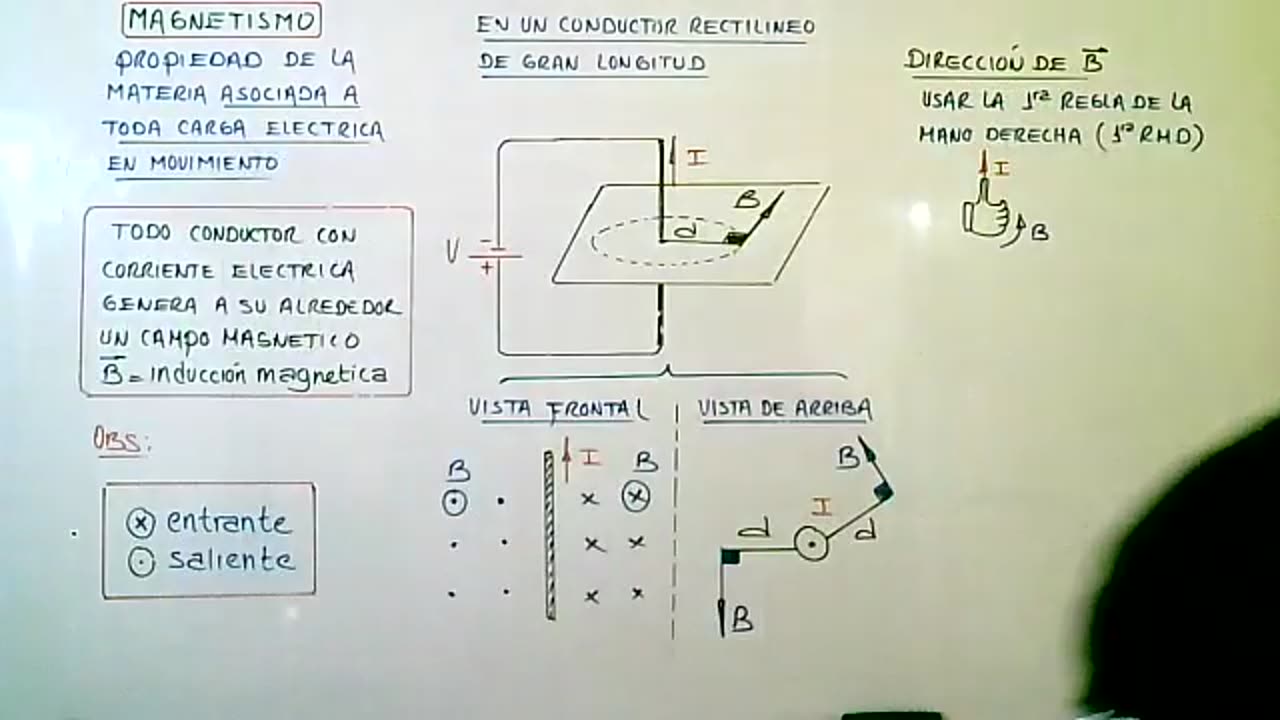 MAGNETISMO
PROPIEDAD DE LA
MATERIA ASOCIADA A
TODA CARGA ELECTRICA
EN MOVIMIENTO
TODO CONDUCTOR CON
CORRIENTE ELECTRICA
GENERA A SU ALREDEDOR
UN CAMPO MAGNETICO
B = inducción magnetica
OBS:
⊗ entrante
⊙ saliente
EN UN CONDUCTOR RECTILINEO
DE GRAN LONGITUD
I
B
d
V
-
+
VISTA FRONTAL
I
B
B
VISTA DE ARRIBA
B
I
d
d
B
DIRECCIÓN DE B
USAR LA 1ra REGLA DE LA
MANO DERECHA (1ra RMD)
I
B